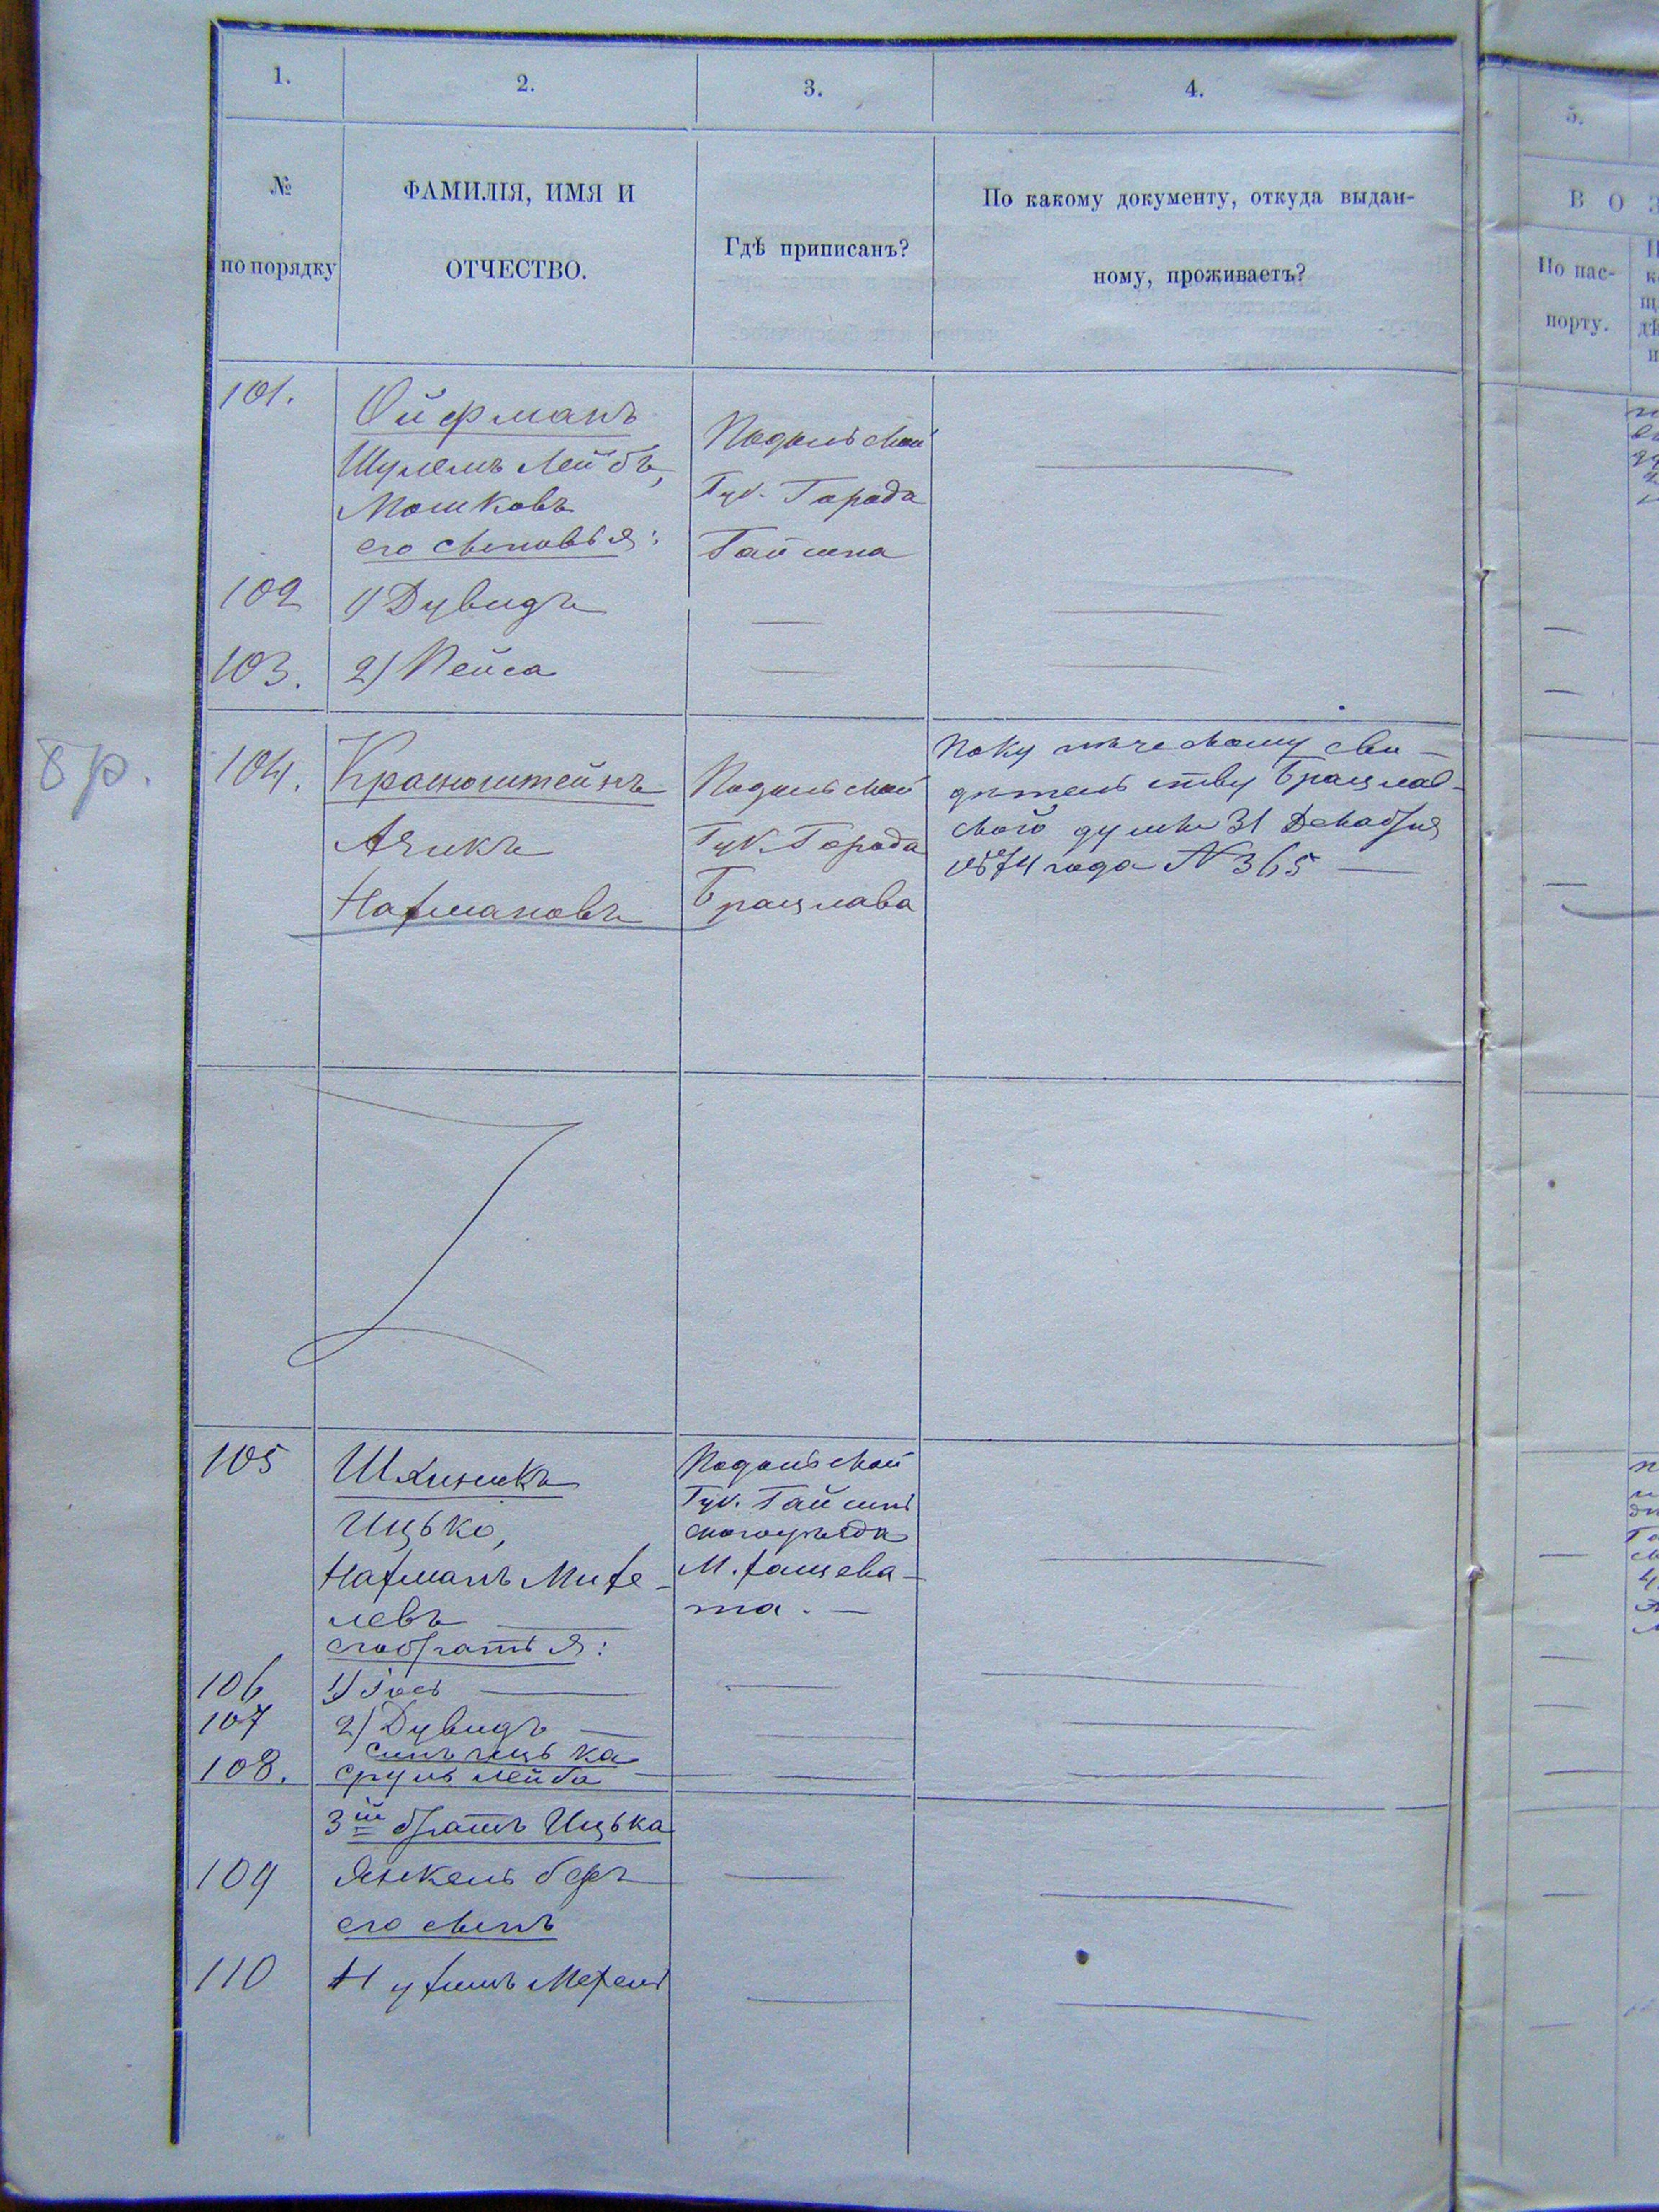 1.
2.
3.
4.
№
по порядку
ФАМИЛІЯ, ИМЯ И
ОТЧЕСТВО.
Гдѣ приписанъ?
По какому документу, откуда выдан-
ному, проживаетъ?
5.
В О З
По пас-
порту.
101.
Ойфманъ
Шулемъ Лейбъ,
Мошковъ
его сыновья:
Подольской
Губ. Города
Гайсина
102
1) Дувидъ
103.
2) Пейса
8 р.
104.
Красноштейнъ
Азикъ
Нахмановъ
Подольской
Губ. Города
Брацлава
По купеческому сви-
дѣтельству Брацлав-
ской думы 31 Декабря
1874 года N 365
105
Шкиникъ
Ицько,
Нахманъ Михе-
левъ
его братья:
Подольской
Губ. Гайсин
скаго уѣзда
М. Хащева-
та.
106
1) Іось
107
2) Дувидъ
сынъ Ицька
108.
Сруль Лейба
3й братъ Ицька
109
Янкель Беръ
его сынъ
110
Нухимъ Мехель